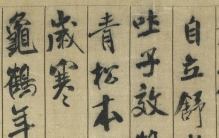 自立舒
吐子效
青松本
歲寒
龜鶴年